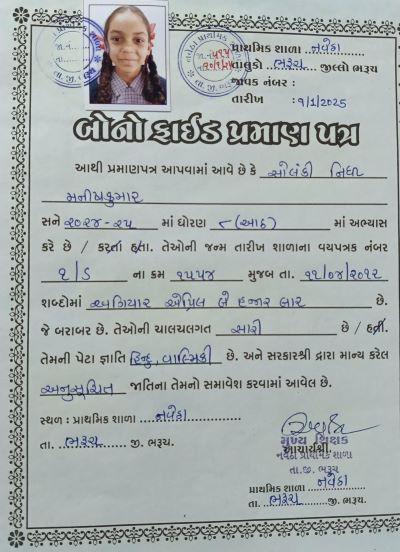 પ્રાથમિક શાળા નવેઠા
તાલુકો ભરૂચ જીલ્લો ભરૂચ
જાવક નંબર :
તારીખ : ૧/1/2025
બોનોફાઈડ પ્રમાણ પત્ર
આથી પ્રમાણપત્ર આપવામાં આવે છે કે સોલંકી નિધી
મનીષકુમાર
સને ૨૦૨૪-૨૫ માં ધોરણ ૮ (આઠ) માં અભ્યાસ
કરે છે / કરતા હતા. તેઓની જન્મ તારીખ શાળાના વયપત્રક નંબર
૧/ડ ના ક્રમ ૧૫૫૪ મુજબ તા. ૧૧/૦૪/૨૦૧૨
શબ્દોમાં અગિયાર એપ્રિલ બે હજાર બાર છે.
જે બરાબર છે. તેઓની ચાલચલગત સારી છે / હતી.
તેમની પેટા જ્ઞાતિ હિન્દુ, વાલ્મિકી છે. અને સરકારશ્રી દ્વારા માન્ય કરેલ
અનુસૂચિત જાતિના તેમનો સમાવેશ કરવામાં આવેલ છે.
સ્થળ : પ્રાથમિક શાળા નવેઠા
તા. ભરૂચ જી. ભરૂચ.
મુખ્ય શિક્ષક
આચાર્યશ્રી,
નવેઠા પ્રાથમિક શાળા
તા.જી. ભરૂચ
પ્રાથમિક શાળા નવેઠા
તા. ભરૂચ જી. ભરૂચ.